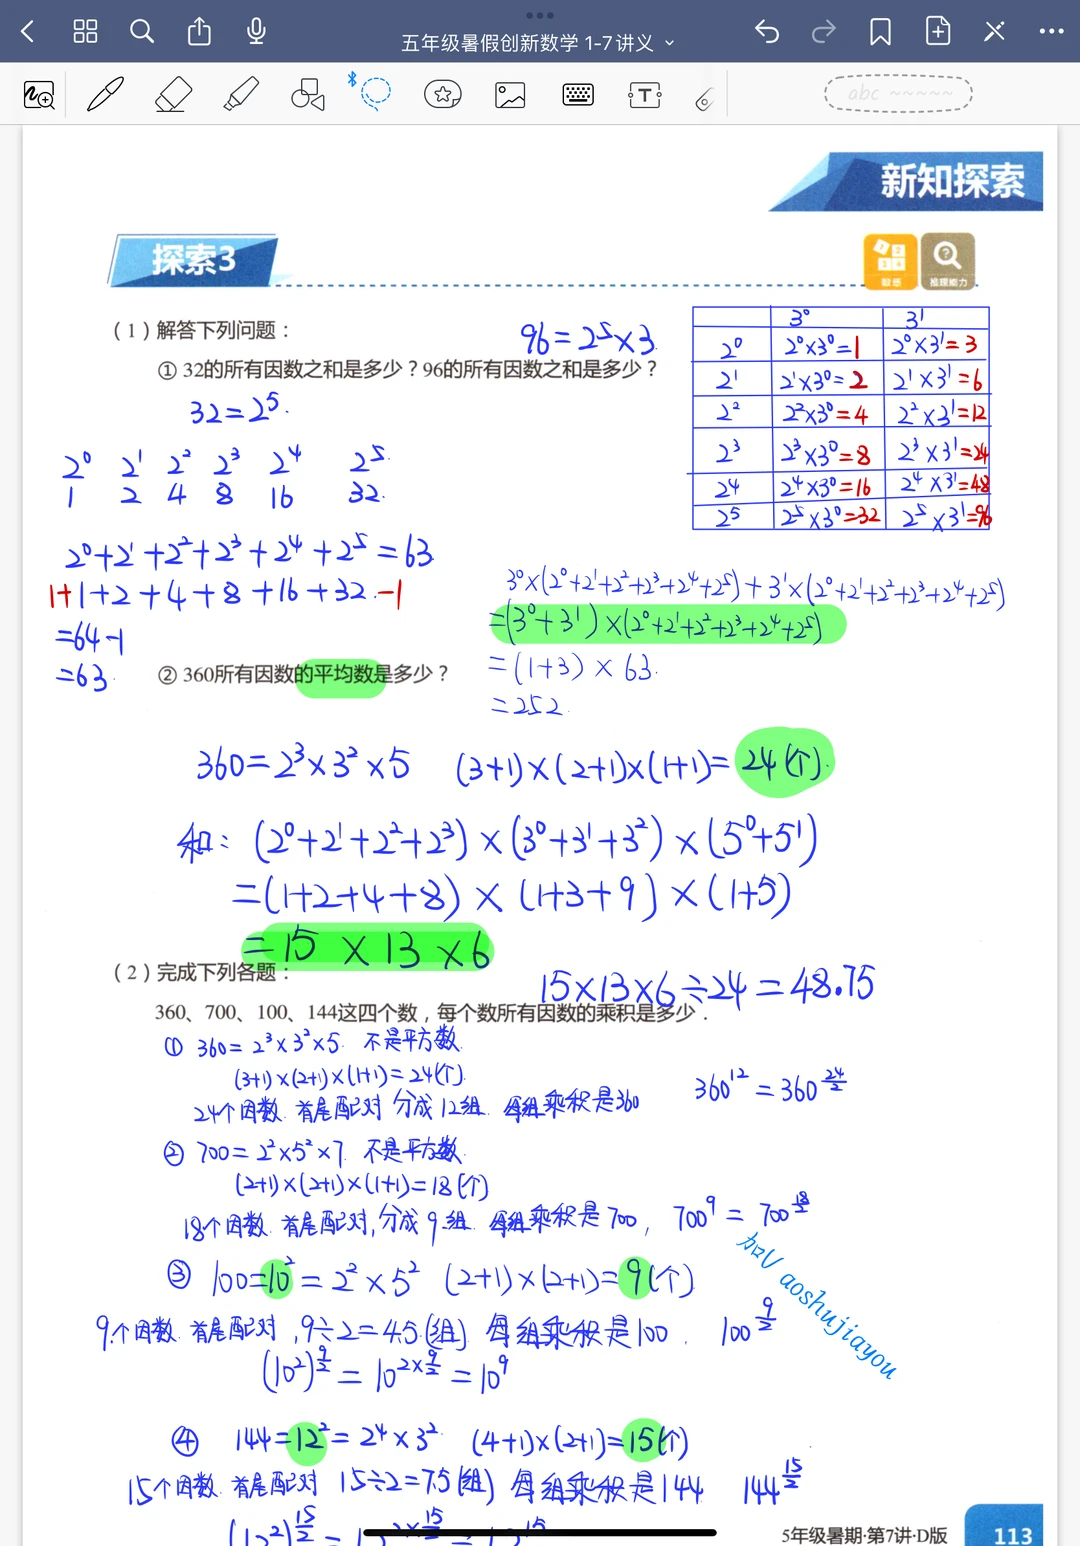 五年级暑假创新数学 1-7讲义
abc ~~~~~
新知探索
探索3
数感
推理能力
（1）解答下列问题：
96=2⁵×3
① 32的所有因数之和是多少？96的所有因数之和是多少？
32=2⁵.
3⁰ 3¹
2⁰ 2⁰×3⁰=1 2⁰×3¹=3
2¹ 2¹×3⁰=2 2¹×3¹=6
2² 2²×3⁰=4 2²×3¹=12
2³ 2³×3⁰=8 2³×3¹=24
2⁴ 2⁴×3⁰=16 2⁴×3¹=48
2⁵ 2⁵×3⁰=32 2⁵×3¹=96
2⁰ 2¹ 2² 2³ 2⁴ 2⁵
1 2 4 8 16 32
2⁰+2¹+2²+2³+2⁴+2⁵=63
1+1+2+4+8+16+32-1
=64-1
=63
3⁰×(2⁰+2¹+2²+2³+2⁴+2⁵)+3¹×(2⁰+2¹+2²+2³+2⁴+2⁵)
=(3⁰+3¹)×(2⁰+2¹+2²+2³+2⁴+2⁵)
=(1+3)×63.
=252
② 360所有因数的平均数是多少？
360=2³×3²×5 (3+1)×(2+1)×(1+1)=24(个).
和：(2⁰+2¹+2²+2³)×(3⁰+3¹+3²)×(5⁰+5¹)
=(1+2+4+8)×(1+3+9)×(1+5)
=15×13×6
15×13×6÷24=48.75
（2）完成下列各题：
360、700、100、144这四个数，每个数所有因数的乘积是多少．
① 360=2³×3²×5 不是平方数
(3+1)×(2+1)×(1+1)=24(个)
24个因数 首尾配对 分成12组 每组乘积是360 360¹²=360^(24/2)
② 700=2²×5²×7 不是平方数
(2+1)×(2+1)×(1+1)=18(个)
18个因数 首尾配对,分成9组 每组乘积是700, 700⁹=700^(18/2)
加油 aoshujiayou
③ 100=10²=2²×5² (2+1)×(2+1)=9(个)
9个因数 首尾配对,9÷2=4.5(组) 每组乘积是100. 100^(9/2)
(10²)^(9/2)=10^(2×9/2)=10⁹
④ 144=12²=2⁴×3² (4+1)×(2+1)=15(个)
15个因数 首尾配对 15÷2=7.5(组) 每组乘积是144 144^(15/2)
5年级暑期·第7讲·D版 113